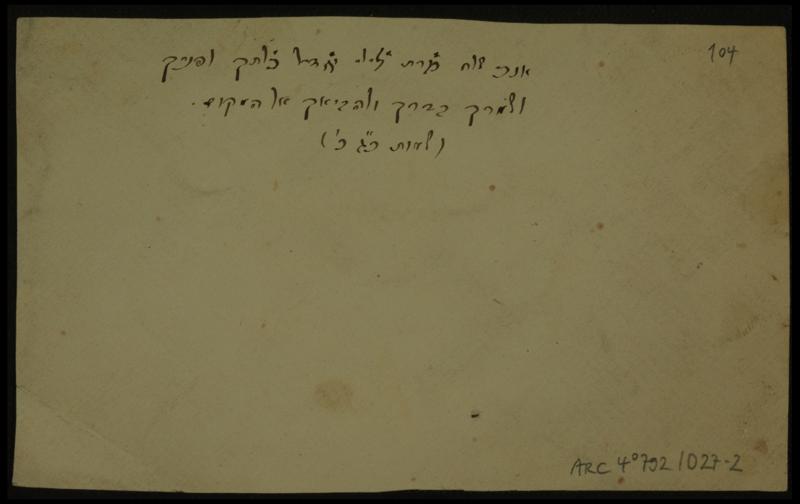 104
אנכי שלח מרת כלתך לפניך
לשמרך בדרך ולהביאך אל המקום.
(שמות כ"ג כ')
ARC 4° 792 / D27-2